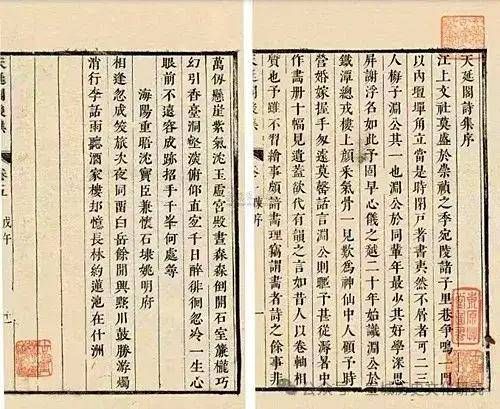 天延閣詩集序
江上文社莫盛於崇禎之季宛陵諸子里巷爭鳴一門
以內壇墠角立當是時閉戸著書夷然不屑者可二三
人梅子淵公其一也淵公於同輩年最少其好學深思
屏謝浮名如此予固早心儀之越二十年始識淵公於
鐵潭總戎樓上顏釆氣骨一見歎為神仙中人顧予時
營婚嫁握手匆遽莫罄話言淵公則驅予甚從溽暑中
作畫册十幅見遺蓋欲代有韻之言如昔人以卷軸相
質也予雖不習繪事頗諳畫理竊謂畫者詩之餘事非
序
萬仭懸崖紫氣沈玉虛宮殿晝森森倒開石室簾櫳巧
幻引香臺洞壑深俯仰直空千日醉徘徊忽冷一生心
眼前不遠容成跡招手千峯何處尋
海陽重晤沈賓臣兼懷石埭姚明府
相逢忽成笑旅次夜同畱白岳餘閒興黟川鼓勝游燭
消行李話雨聽酒家樓却憶長林約蓮池在什洲
天延閣後集
卷五
戊午
十一